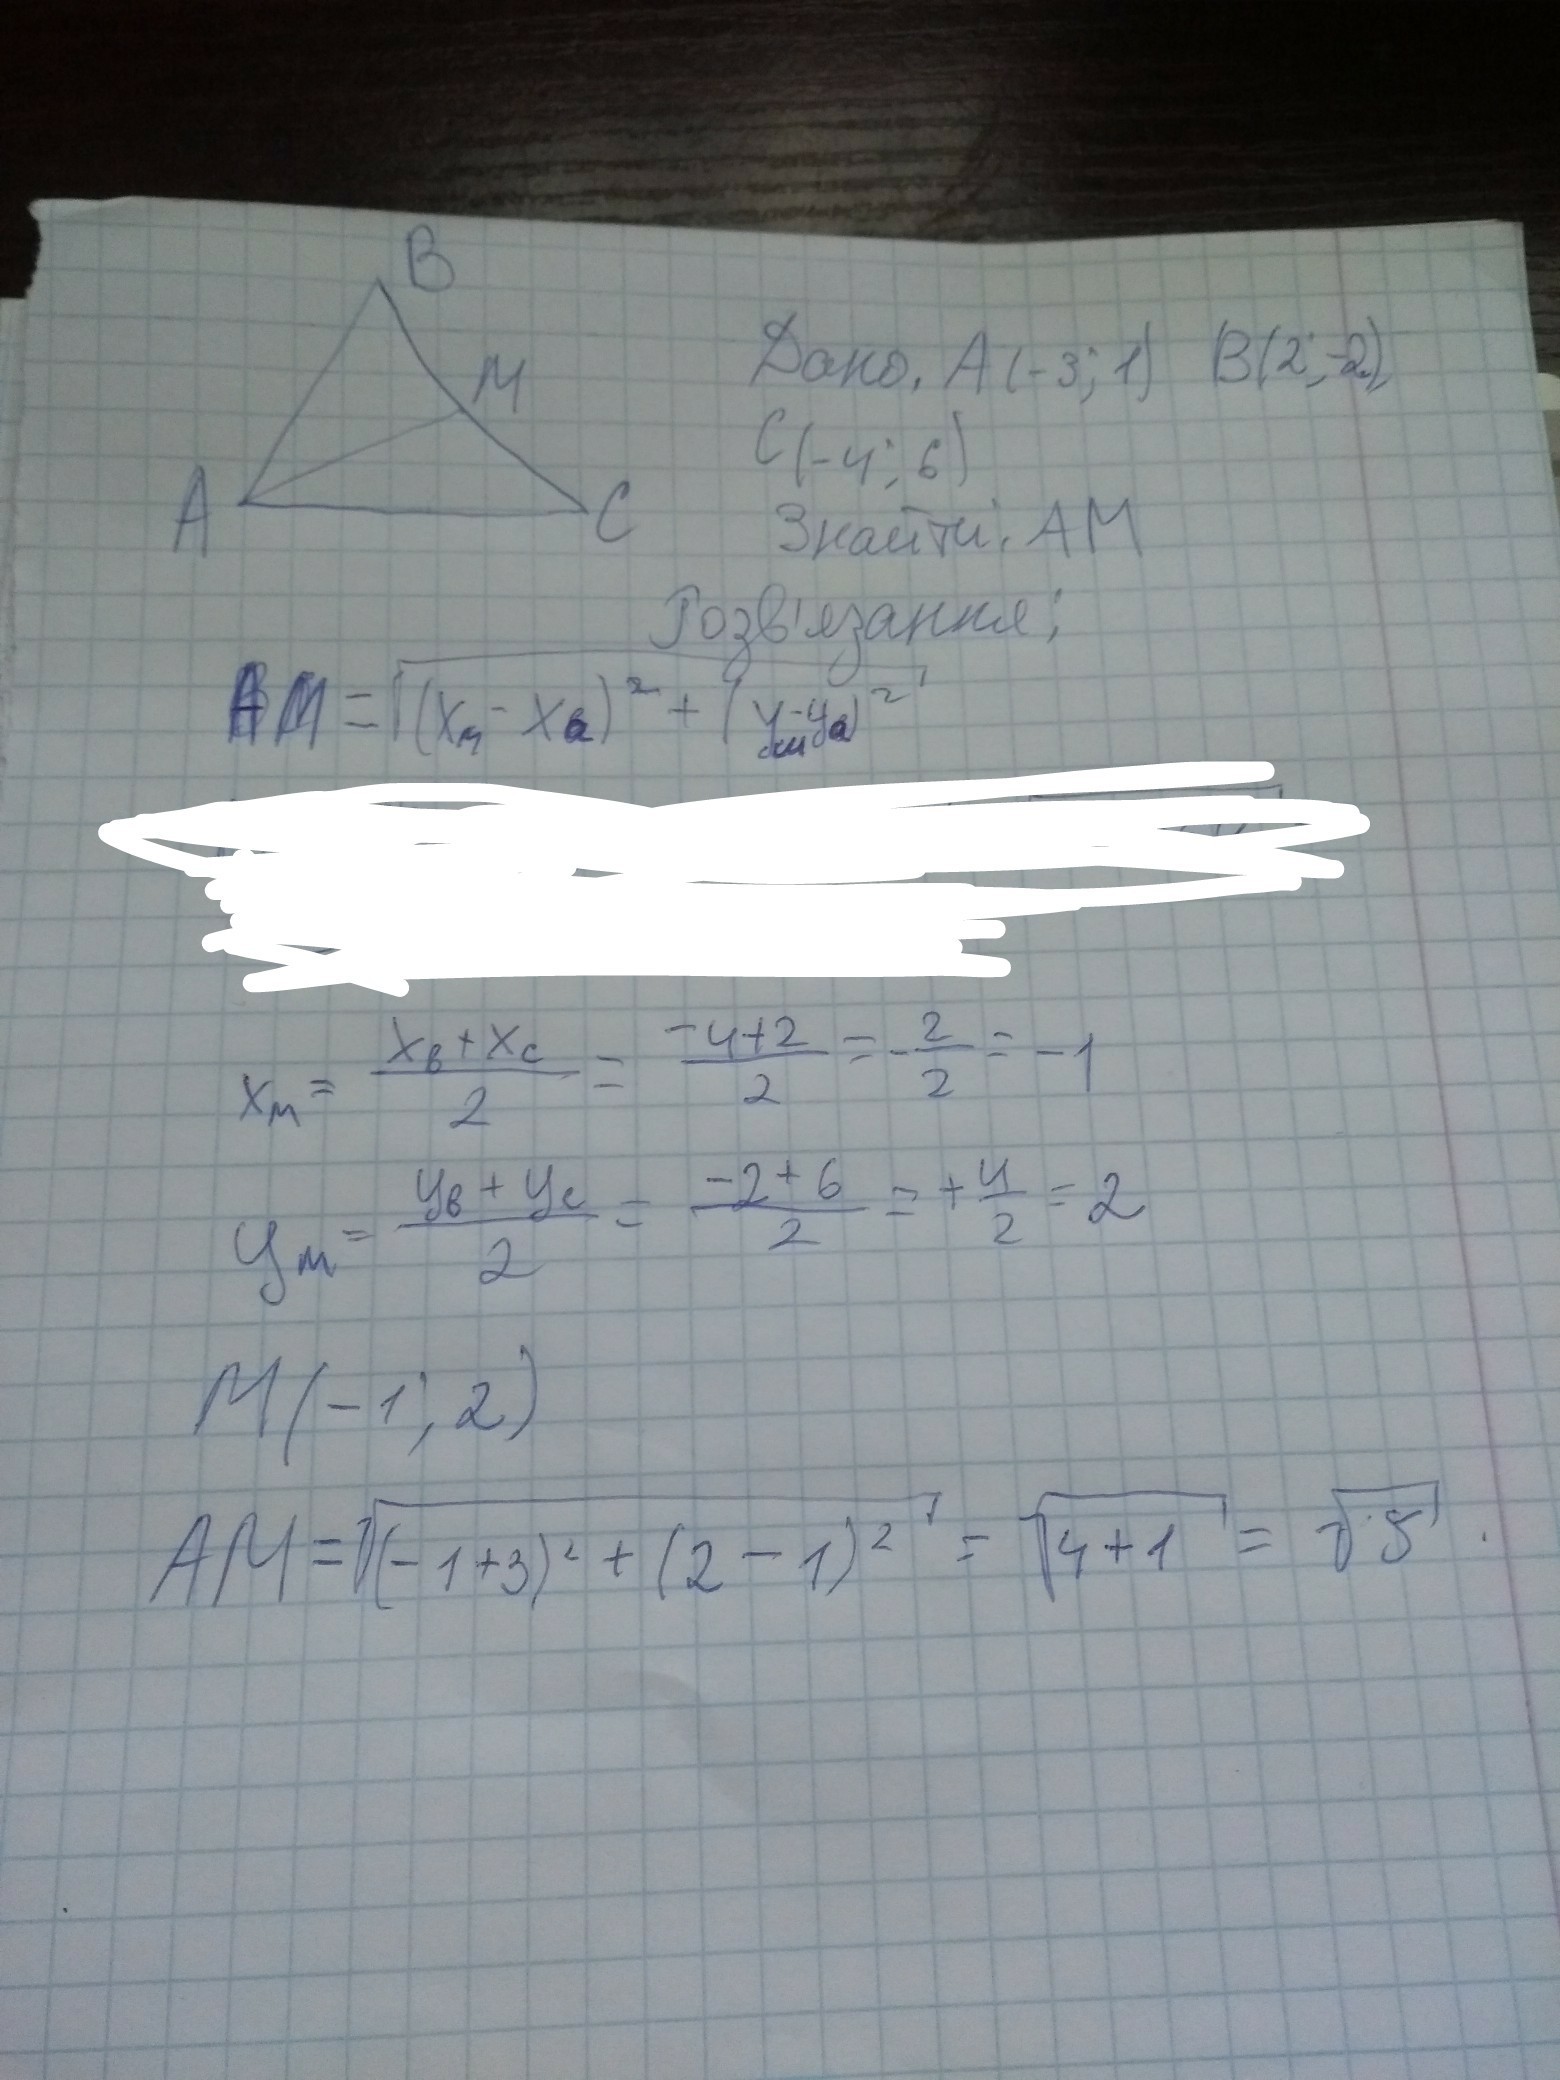 B
M
A
C
Дано. A(-3; 1) B(2; -2),
C(-4; 6)
Знайти. AM
Розв'язання:
AM = √((xм - xa)² + (yм - ya)²)
xм = (xв + xc)/2 = (-4+2)/2 = -2/2 = -1
yм = (yв + yc)/2 = (-2+6)/2 = +4/2 = 2
M(-1; 2)
AM = √((-1+3)² + (2-1)²) = √(4+1) = √5.